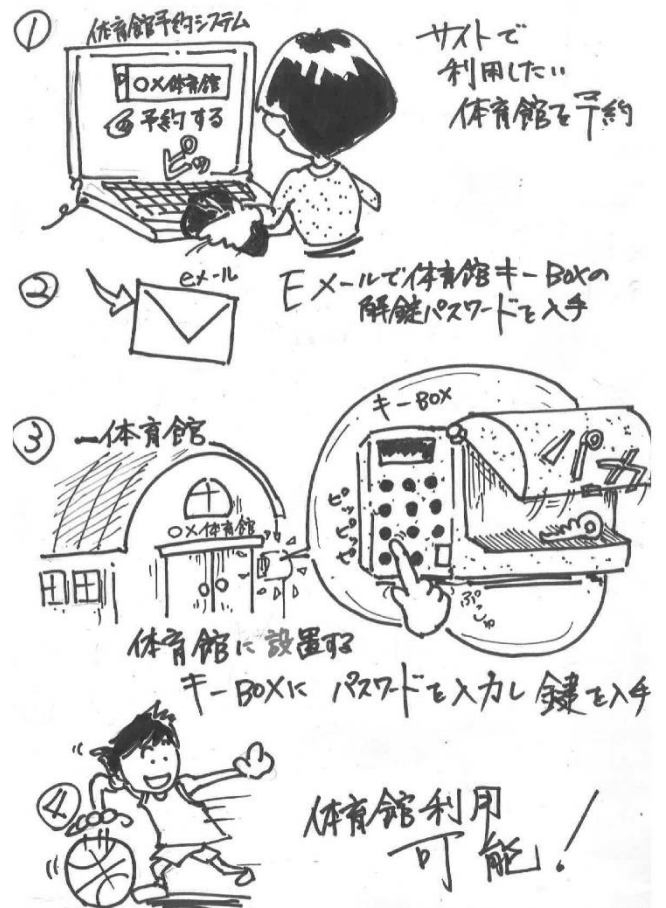 ①
体育館予約システム
○×体育館
予約する
ピッ
サイトで
利用したい
体育館を予約
②
eメール
Eメールで体育館キーBOXの
解錠パスワードを入手
③
体育館
○×体育館
キーBOX
ピッ
ピッ
ピッ
パカ
ぷしゅ
体育館に設置する
キーBOXにパスワードを入力し鍵を入手
④
体育館利用
可能!